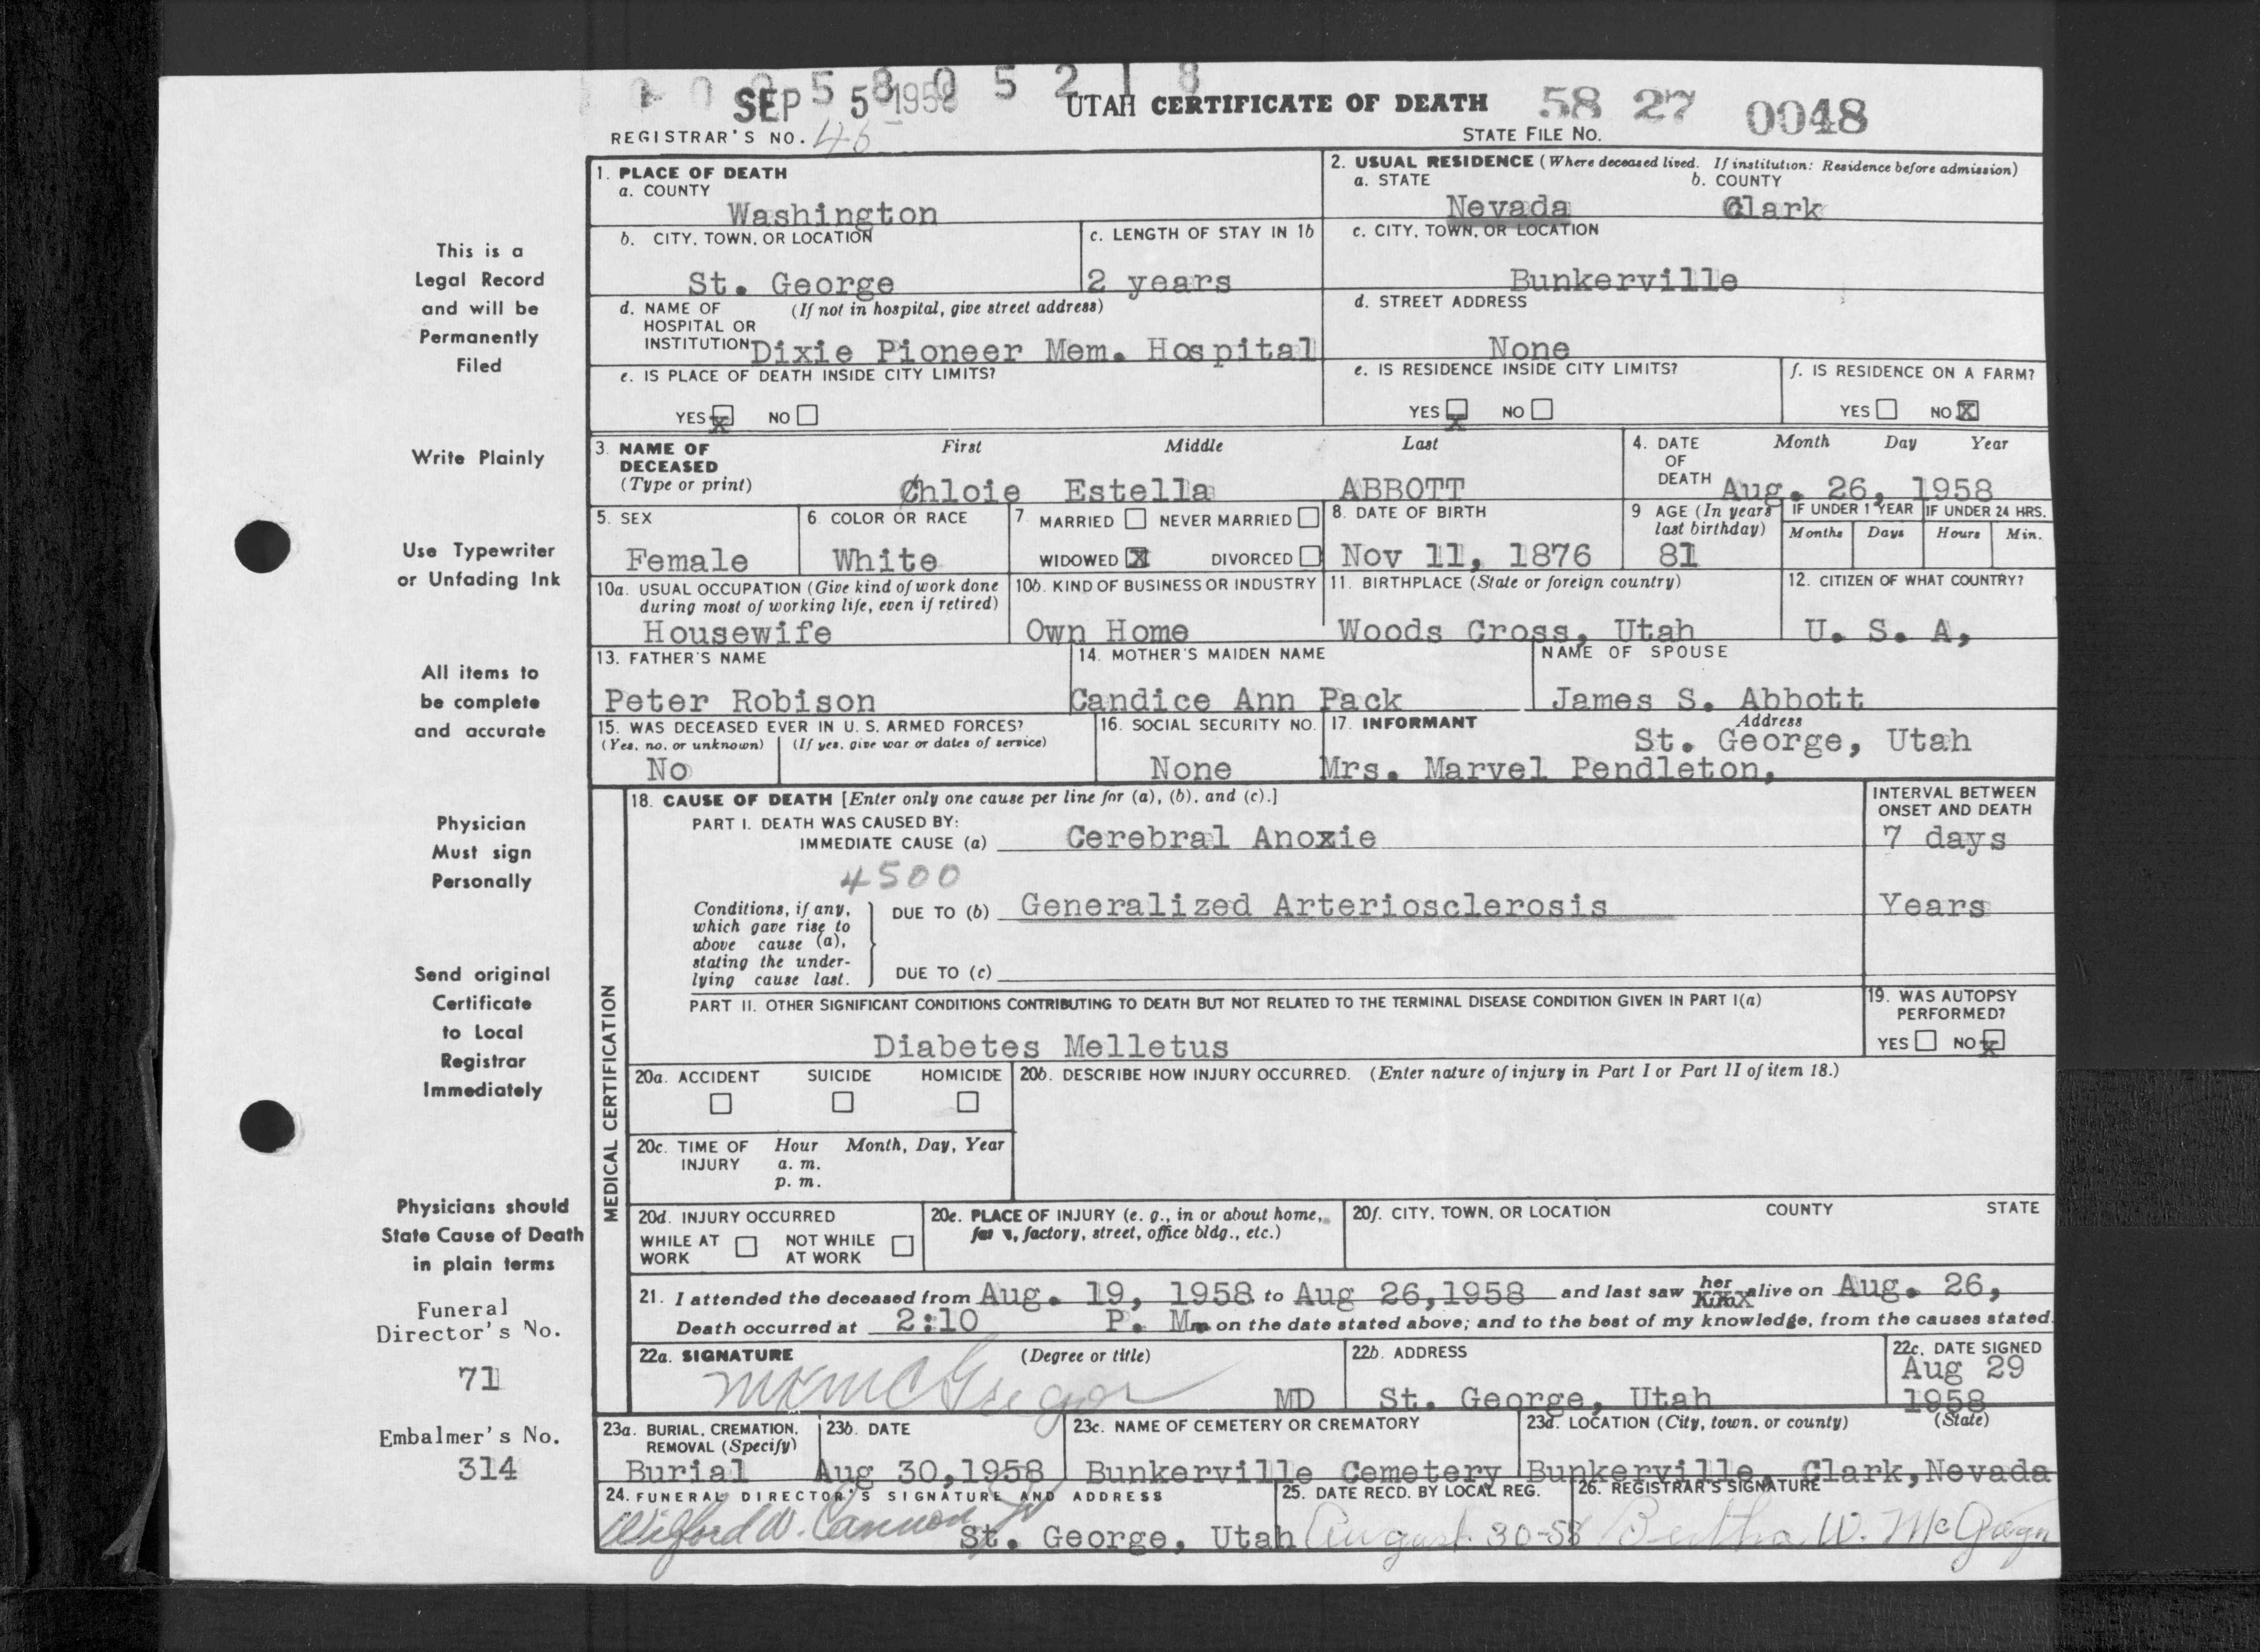 SEP 5 1958
UTAH CERTIFICATE OF DEATH 58 27 0048
REGISTRAR'S NO. 46 STATE FILE NO.
1. PLACE OF DEATH
a. COUNTY
Washington
2. USUAL RESIDENCE (Where deceased lived. If institution: Residence before admission)
a. STATE b. COUNTY
Nevada Clark
b. CITY, TOWN, OR LOCATION
St. George
c. LENGTH OF STAY IN 1b
2 years
c. CITY, TOWN, OR LOCATION
Bunkerville
d. NAME OF (If not in hospital, give street address)
HOSPITAL OR
INSTITUTION Dixie Pioneer Mem. Hospital
d. STREET ADDRESS
None
e. IS PLACE OF DEATH INSIDE CITY LIMITS?
YES X NO
e. IS RESIDENCE INSIDE CITY LIMITS?
YES X NO
f. IS RESIDENCE ON A FARM?
YES NO X
3. NAME OF First Middle Last
DECEASED
(Type or print) Chloie Estella ABBOTT
4. DATE Month Day Year
OF
DEATH Aug. 26, 1958
5. SEX
Female
6. COLOR OR RACE
White
7. MARRIED NEVER MARRIED
WIDOWED X DIVORCED
8. DATE OF BIRTH
Nov 11, 1876
9 AGE (In years
last birthday)
81
IF UNDER 1 YEAR IF UNDER 24 HRS.
Months Days Hours Min.
10a. USUAL OCCUPATION (Give kind of work done
during most of working life, even if retired)
Housewife
10b. KIND OF BUSINESS OR INDUSTRY
Own Home
11. BIRTHPLACE (State or foreign country)
Woods Cross, Utah
12. CITIZEN OF WHAT COUNTRY?
U. S. A,
13. FATHER'S NAME
Peter Robison
14. MOTHER'S MAIDEN NAME
Candice Ann Pack
NAME OF SPOUSE
James S. Abbott
15. WAS DECEASED EVER IN U. S. ARMED FORCES?
(Yes, no, or unknown) (If yes, give war or dates of service)
No
16. SOCIAL SECURITY NO.
None
17. INFORMANT Address
St. George, Utah
Mrs. Marvel Pendleton,
MEDICAL CERTIFICATION
18. CAUSE OF DEATH [Enter only one cause per line for (a), (b), and (c).]
INTERVAL BETWEEN
ONSET AND DEATH
PART I. DEATH WAS CAUSED BY:
IMMEDIATE CAUSE (a) Cerebral Anoxie 7 days
4500
Conditions, if any,
which gave rise to
above cause (a),
stating the under-
lying cause last.
DUE TO (b) Generalized Arteriosclerosis Years
DUE TO (c)
PART II. OTHER SIGNIFICANT CONDITIONS CONTRIBUTING TO DEATH BUT NOT RELATED TO THE TERMINAL DISEASE CONDITION GIVEN IN PART I(a)
Diabetes Melletus
19. WAS AUTOPSY
PERFORMED?
YES NO X
20a. ACCIDENT SUICIDE HOMICIDE
20b. DESCRIBE HOW INJURY OCCURRED. (Enter nature of injury in Part I or Part II of item 18.)
20c. TIME OF Hour Month, Day, Year
INJURY a. m.
p. m.
20d. INJURY OCCURRED
WHILE AT NOT WHILE
WORK AT WORK
20e. PLACE OF INJURY (e. g., in or about home,
factory, street, office bldg., etc.)
20f. CITY, TOWN, OR LOCATION COUNTY STATE
21. I attended the deceased from Aug. 19, 1958 to Aug 26,1958 and last saw her alive on Aug. 26,
Death occurred at 2:10 P. M. on the date stated above; and to the best of my knowledge, from the causes stated.
22a. SIGNATURE (Degree or title)
McGregor MD
22b. ADDRESS
St. George, Utah
22c. DATE SIGNED
Aug 29
1958
23a. BURIAL, CREMATION,
REMOVAL (Specify)
Burial
23b. DATE
Aug 30,1958
23c. NAME OF CEMETERY OR CREMATORY
Bunkerville Cemetery
23d. LOCATION (City, town, or county) (State)
Bunkerville, Clark, Nevada
24. FUNERAL DIRECTOR'S SIGNATURE AND ADDRESS
Wilford W. Cannon Jr
St. George, Utah
25. DATE RECD. BY LOCAL REG.
August 30-58
26. REGISTRAR'S SIGNATURE
Bertha W. McGagn
This is a
Legal Record
and will be
Permanently
Filed
Write Plainly
Use Typewriter
or Unfading Ink
All items to
be complete
and accurate
Physician
Must sign
Personally
Send original
Certificate
to Local
Registrar
Immediately
Physicians should
State Cause of Death
in plain terms
Funeral
Director's No.
71
Embalmer's No.
314